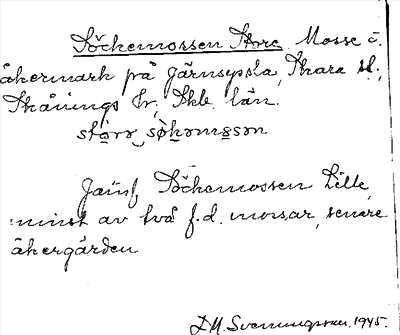 Söckemossen Store. Mosse å
åkermark på Järnsyssla, Skara sl.,
Skånings hr, Skb. län.
Jämf Söckemossen Lille,
minst av två f.d. mossar, senare
åkergärden
J.M. Svenungsson. 1945.